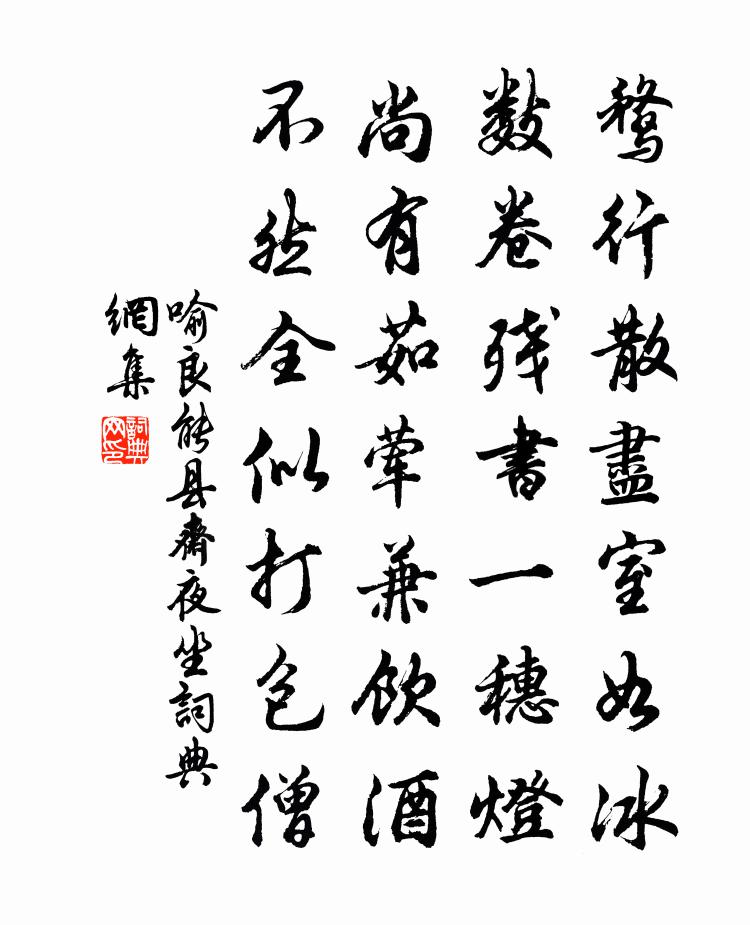 鶩行散盡室如冰
数卷残書一穗燈
尚有茹荤兼飲酒
不然全似打包僧
喻良能县齋夜坐詞典
網集
詞典
网印